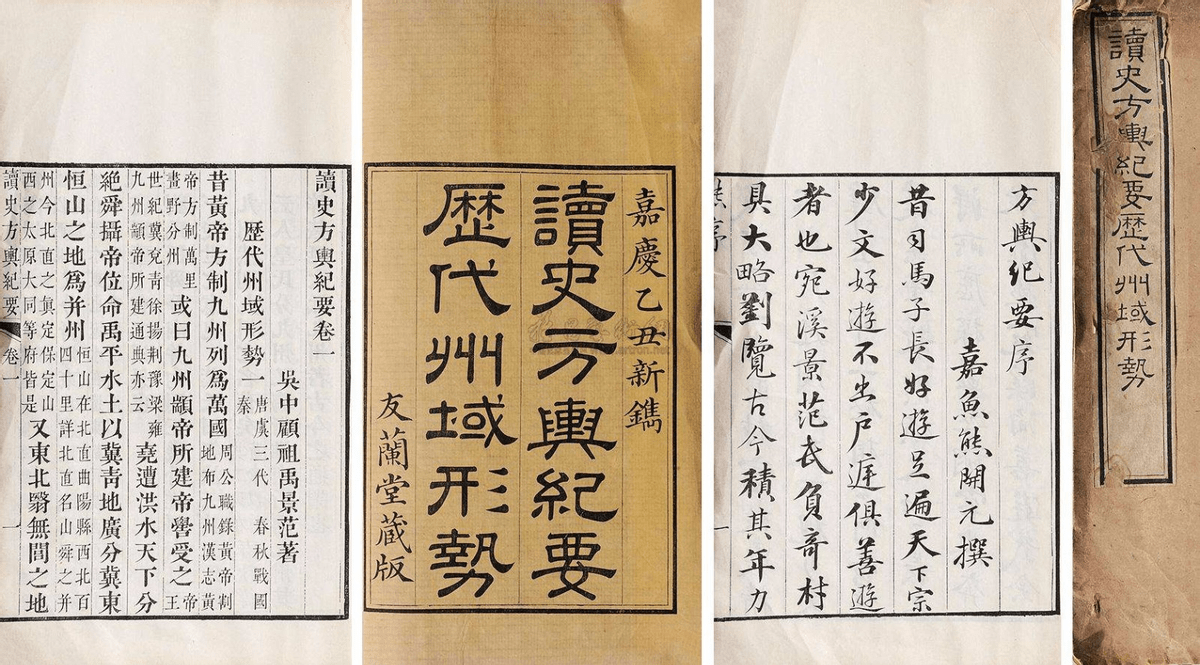 讀史方輿紀要卷一
吳中顧祖禹景范著
歷代州域形勢一 唐虞三代 春秋戰國 秦
昔黃帝方制九州列爲萬國 周公職錄黃帝割地布九州漢志黃
帝方制萬里畫野分州 或曰九州顓帝所建帝嚳受之 帝王
世紀冀兗靑徐揚荆豫梁雍九州顓帝所建通典亦云 堯遭洪水天下分
絕舜攝帝位命禹平水土以冀靑地廣分冀東
恒山之地爲并州 恒山在北直曲陽縣西北百四十里詳北直名山舜之并
州今北直之眞定保定山西之太原大同等府皆是 又東北醫無閭之地
讀史方輿紀要 卷一 一
嘉慶乙丑新鐫
讀史方輿紀要
歷代州域形勢
友蘭堂藏版
方輿紀要序
嘉魚熊開元撰
昔司馬子長好遊足遍天下宗
少文好遊不出戶庭俱善遊
者也宛溪景范氏負奇材
具大略劉覽古今積其年力
讀史方輿紀要歷代州域形勢